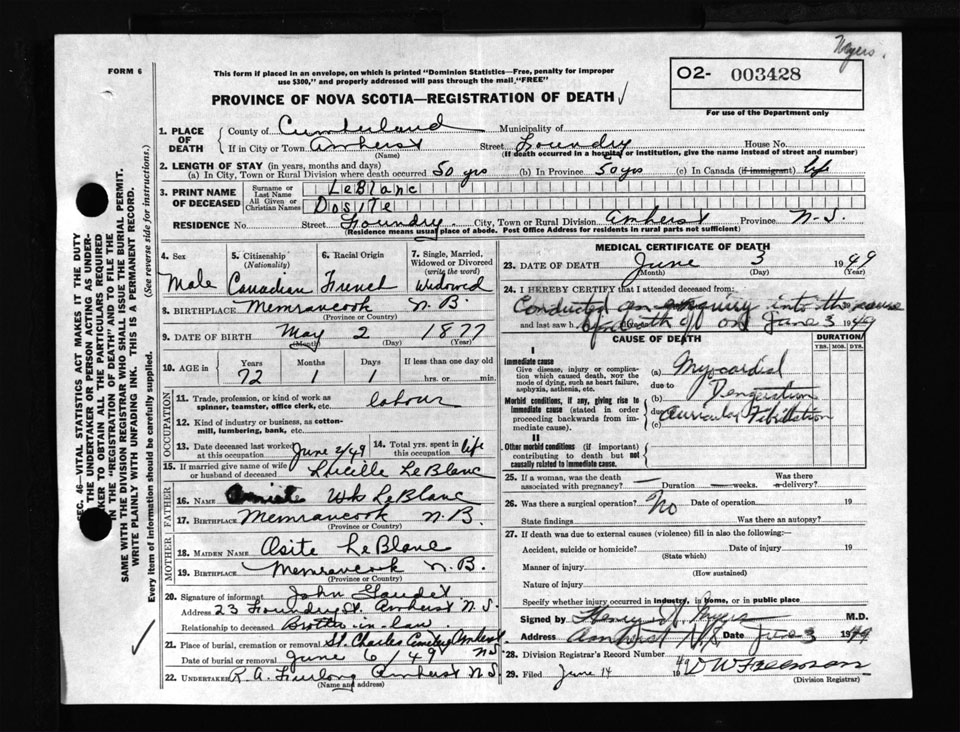 Myers
FORM 6
This form if placed in an envelope, on which is printed "Dominion Statistics—Free, penalty for improper
use $300," and properly addressed will pass through the mail "FREE"
O2- 003428
For use of the Department only
PROVINCE OF NOVA SCOTIA—REGISTRATION OF DEATH
SEC. 46—VITAL STATISTICS ACT MAKES IT THE DUTY
OF THE UNDERTAKER OR PERSON ACTING AS UNDER-
TAKER TO OBTAIN ALL THE PARTICULARS REQUIRED
IN THE "REGISTRATION OF DEATH" AND TO FILE THE
SAME WITH THE DIVISION REGISTRAR WHO SHALL ISSUE THE BURIAL PERMIT.
WRITE PLAINLY WITH UNFADING INK. THIS IS A PERMANENT RECORD.
Every item of information should be carefully supplied. (See reverse side for instructions.)
1. PLACE OF DEATH County of Cumberland Municipality of
If in City or Town Amherst Street Foundry House No.
(Name) (If death occurred in a hospital or institution, give the name instead of street and number)
2. LENGTH OF STAY (in years, months and days)
(a) In City, Town or Rural Division where death occurred 50 yrs (b) In Province 50 yrs (c) In Canada (if immigrant) life
3. PRINT NAME OF DECEASED Surname or Last Name LeBlanc
All Given or Christian Names Dosite
RESIDENCE No. Street Foundry City, Town or Rural Division Amherst Province N.S.
(Residence means usual place of abode. Post Office Address for residents in rural parts not sufficient)
4. Sex 5. Citizenship (Nationality) 6. Racial Origin 7. Single, Married, Widowed or Divorced (write the word)
Male Canadian French Widowed
8. BIRTHPLACE Memramcook N.B.
(Province or Country)
9. DATE OF BIRTH May 2 1877
(Month) (Day) (Year)
10. AGE in Years Months Days If less than one day old
72 1 1 hrs. or min.
OCCUPATION
11. Trade, profession, or kind of work as
spinner, teamster, office clerk, etc. labour
12. Kind of industry or business, as cotton-
mill, lumbering, bank, etc.
13. Date deceased last worked at this occupation June 2/49 14. Total yrs. spent in this occupation life
15. If married give name of wife or husband of deceased Lucille LeBlanc
FATHER
16. NAME LeBlanc
17. BIRTHPLACE Memramcook N.B.
(Province or Country)
MOTHER
18. MAIDEN NAME Osite LeBlanc
19. BIRTHPLACE Memramcook N.B.
(Province or Country)
20. Signature of informant John Gaudet
Address 23 Foundry St. Amherst N.S.
Relationship to deceased Brother-in-law
21. Place of burial, cremation or removal St. Charles Amherst N.S.
Date of burial or removal June 6/49
22. UNDERTAKER R. A. Furlong Amherst N.S.
(Name and address)
MEDICAL CERTIFICATE OF DEATH
23. DATE OF DEATH June 3 1949
(Month) (Day) (Year)
24. I HEREBY CERTIFY that I attended deceased from:
Conducted an enquiry into the cause
and last saw h of death on June 3 1949
CAUSE OF DEATH DURATION
YRS. MOS. DYS.
I
Immediate cause
Give disease, injury or complica-
tion which caused death, NOT the
mode of dying, such as heart failure,
asphyxia, asthenia, etc.
(a) Myocardial
due to
Morbid conditions, if any, giving rise to
immediate cause (stated in order
proceeding backwards from im-
mediate cause).
(b) Degeneration
due to
(c) Auricular Fibrillation
II
Other morbid conditions (if important)
contributing to death but not
causally related to immediate cause.
25. If a woman, was the death associated with pregnancy? — Duration — weeks. Was there a delivery?
26. Was there a surgical operation? No Date of operation 19
State findings Was there an autopsy?
27. If death was due to external causes (violence) fill in also the following:
Accident, suicide or homicide? Date of injury 19
(State which)
Manner of injury
(How sustained)
Nature of injury
Specify whether injury occurred in industry, in home, or in public place
Signed by Henry W. Myers M.D.
Address Amherst N.S. Date June 3 1949
28. Division Registrar's Record Number
29. Filed June 14 1949 D W Freeman
(Division Registrar)